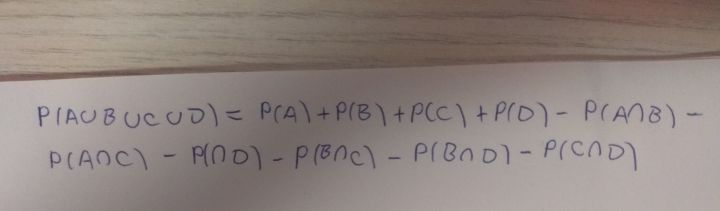 P(A∪B∪C∪D) = P(A)+P(B)+P(C)+P(D)- P(A∩B) -
P(A∩C) - P(∩D) - P(B∩C) - P(B∩D) - P(C∩D)